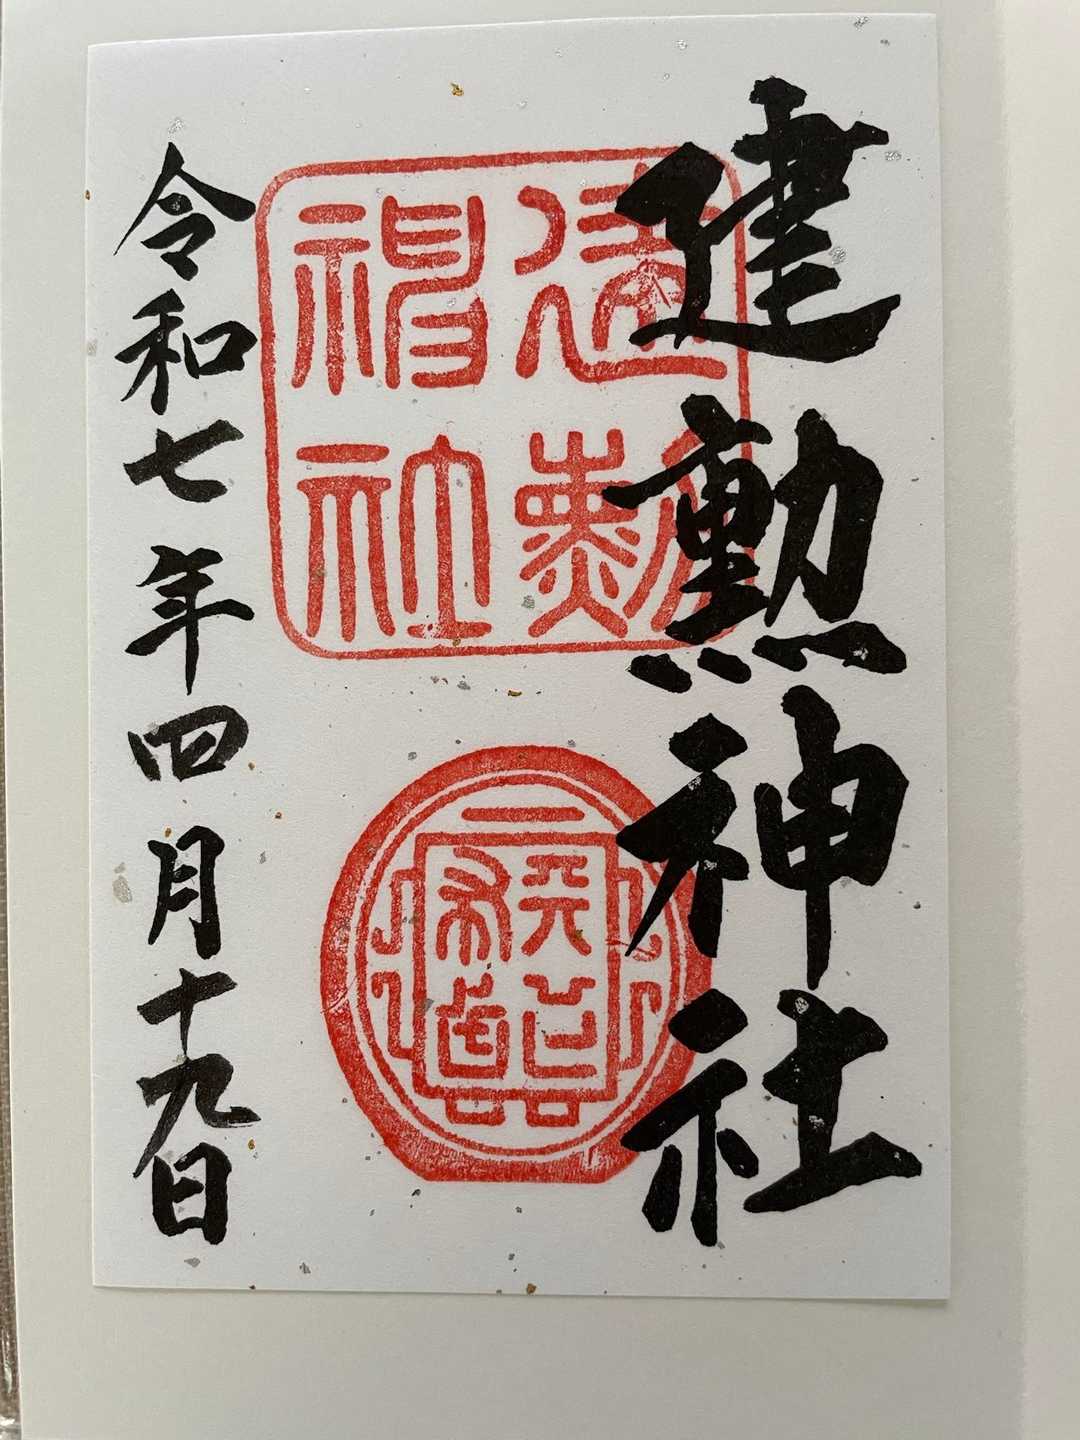 建勲神社
建勲
神社
令和七年四月十九日